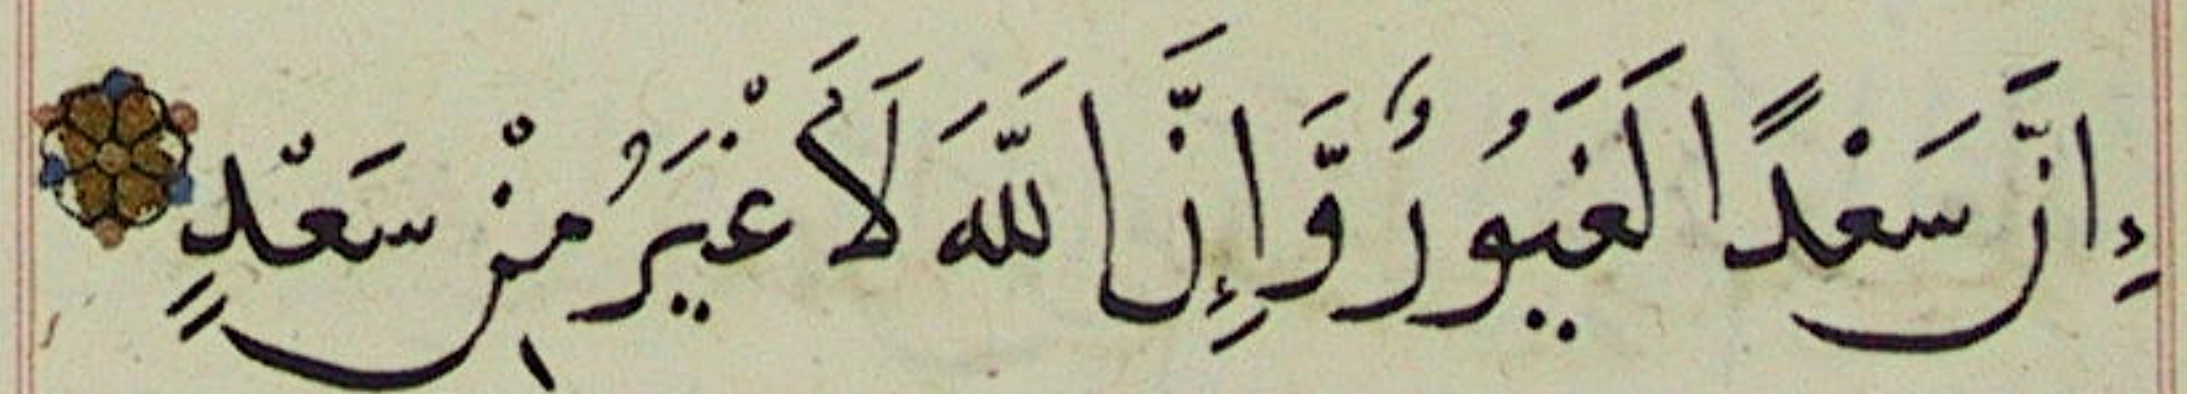 إِنَّ سَعْدًا لَغَيُورٌ وَّإِنَّ اللّٰهَ لَأَغْيَرُ مِنْ سَعْدٍ